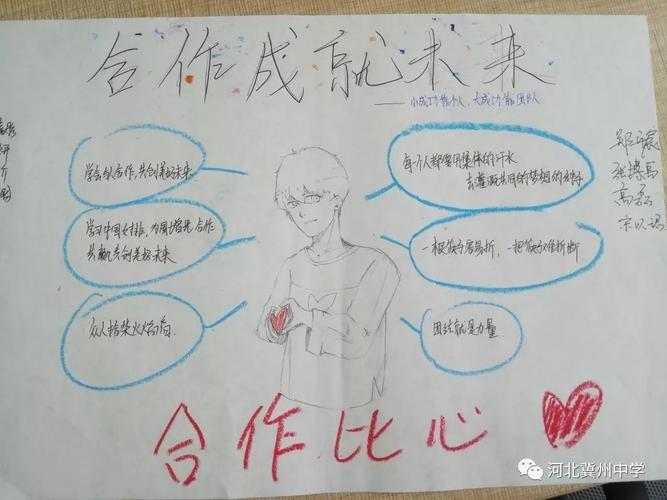 合作成就未来
——小成功靠个人，大成功靠团队
学会以合作，共创美好未来
每一个人都要用集体的汗水
去灌溉共同的梦想的种子
学习中国女排，为国增光 合作
共赢共创美好未来
一根筷子容易折，一把筷子难折断
众人拾柴火焰高
团结就是力量
高磊
合作比心
河北冀州中学